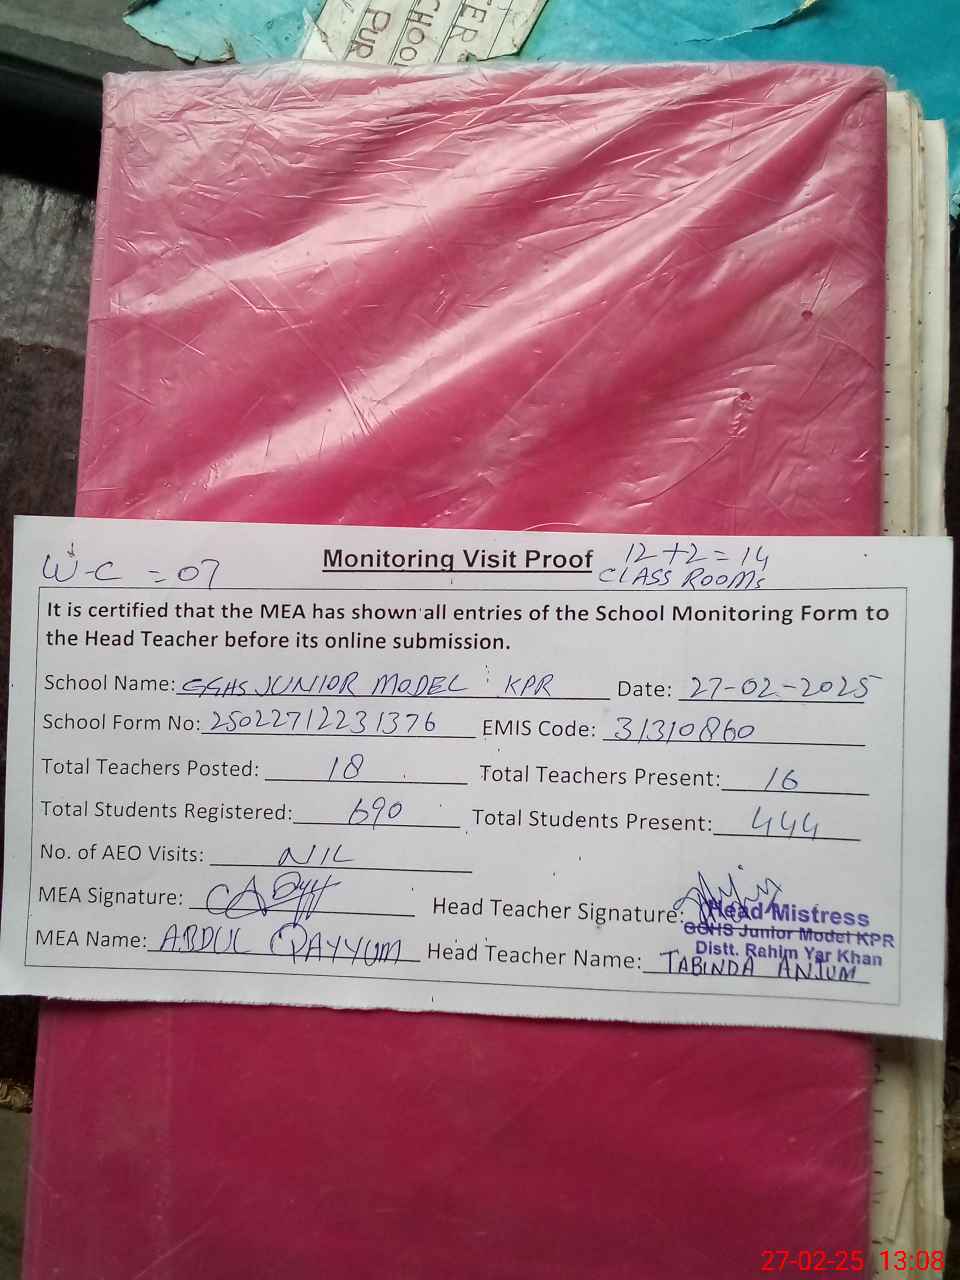 TER
CHOOL
PUR
Monitoring Visit Proof
W-C = 07
12+2=14
CLASS ROOMs
It is certified that the MEA has shown all entries of the School Monitoring Form to
the Head Teacher before its online submission.
School Name: GGHS JUNIOR MODEL KPR Date: 27-02-2025
School Form No: 25022712231376 EMIS Code: 31310860
Total Teachers Posted: 18 Total Teachers Present: 16
Total Students Registered: 690 Total Students Present: 444
No. of AEO Visits: NIL
MEA Signature: Head Teacher Signature:
Head Mistress
GGHS Junior Model KPR
Distt. Rahim Yar Khan
MEA Name: ABDUL QAYYUM Head Teacher Name: TABINDA ANJUM
27-02-25 13:08